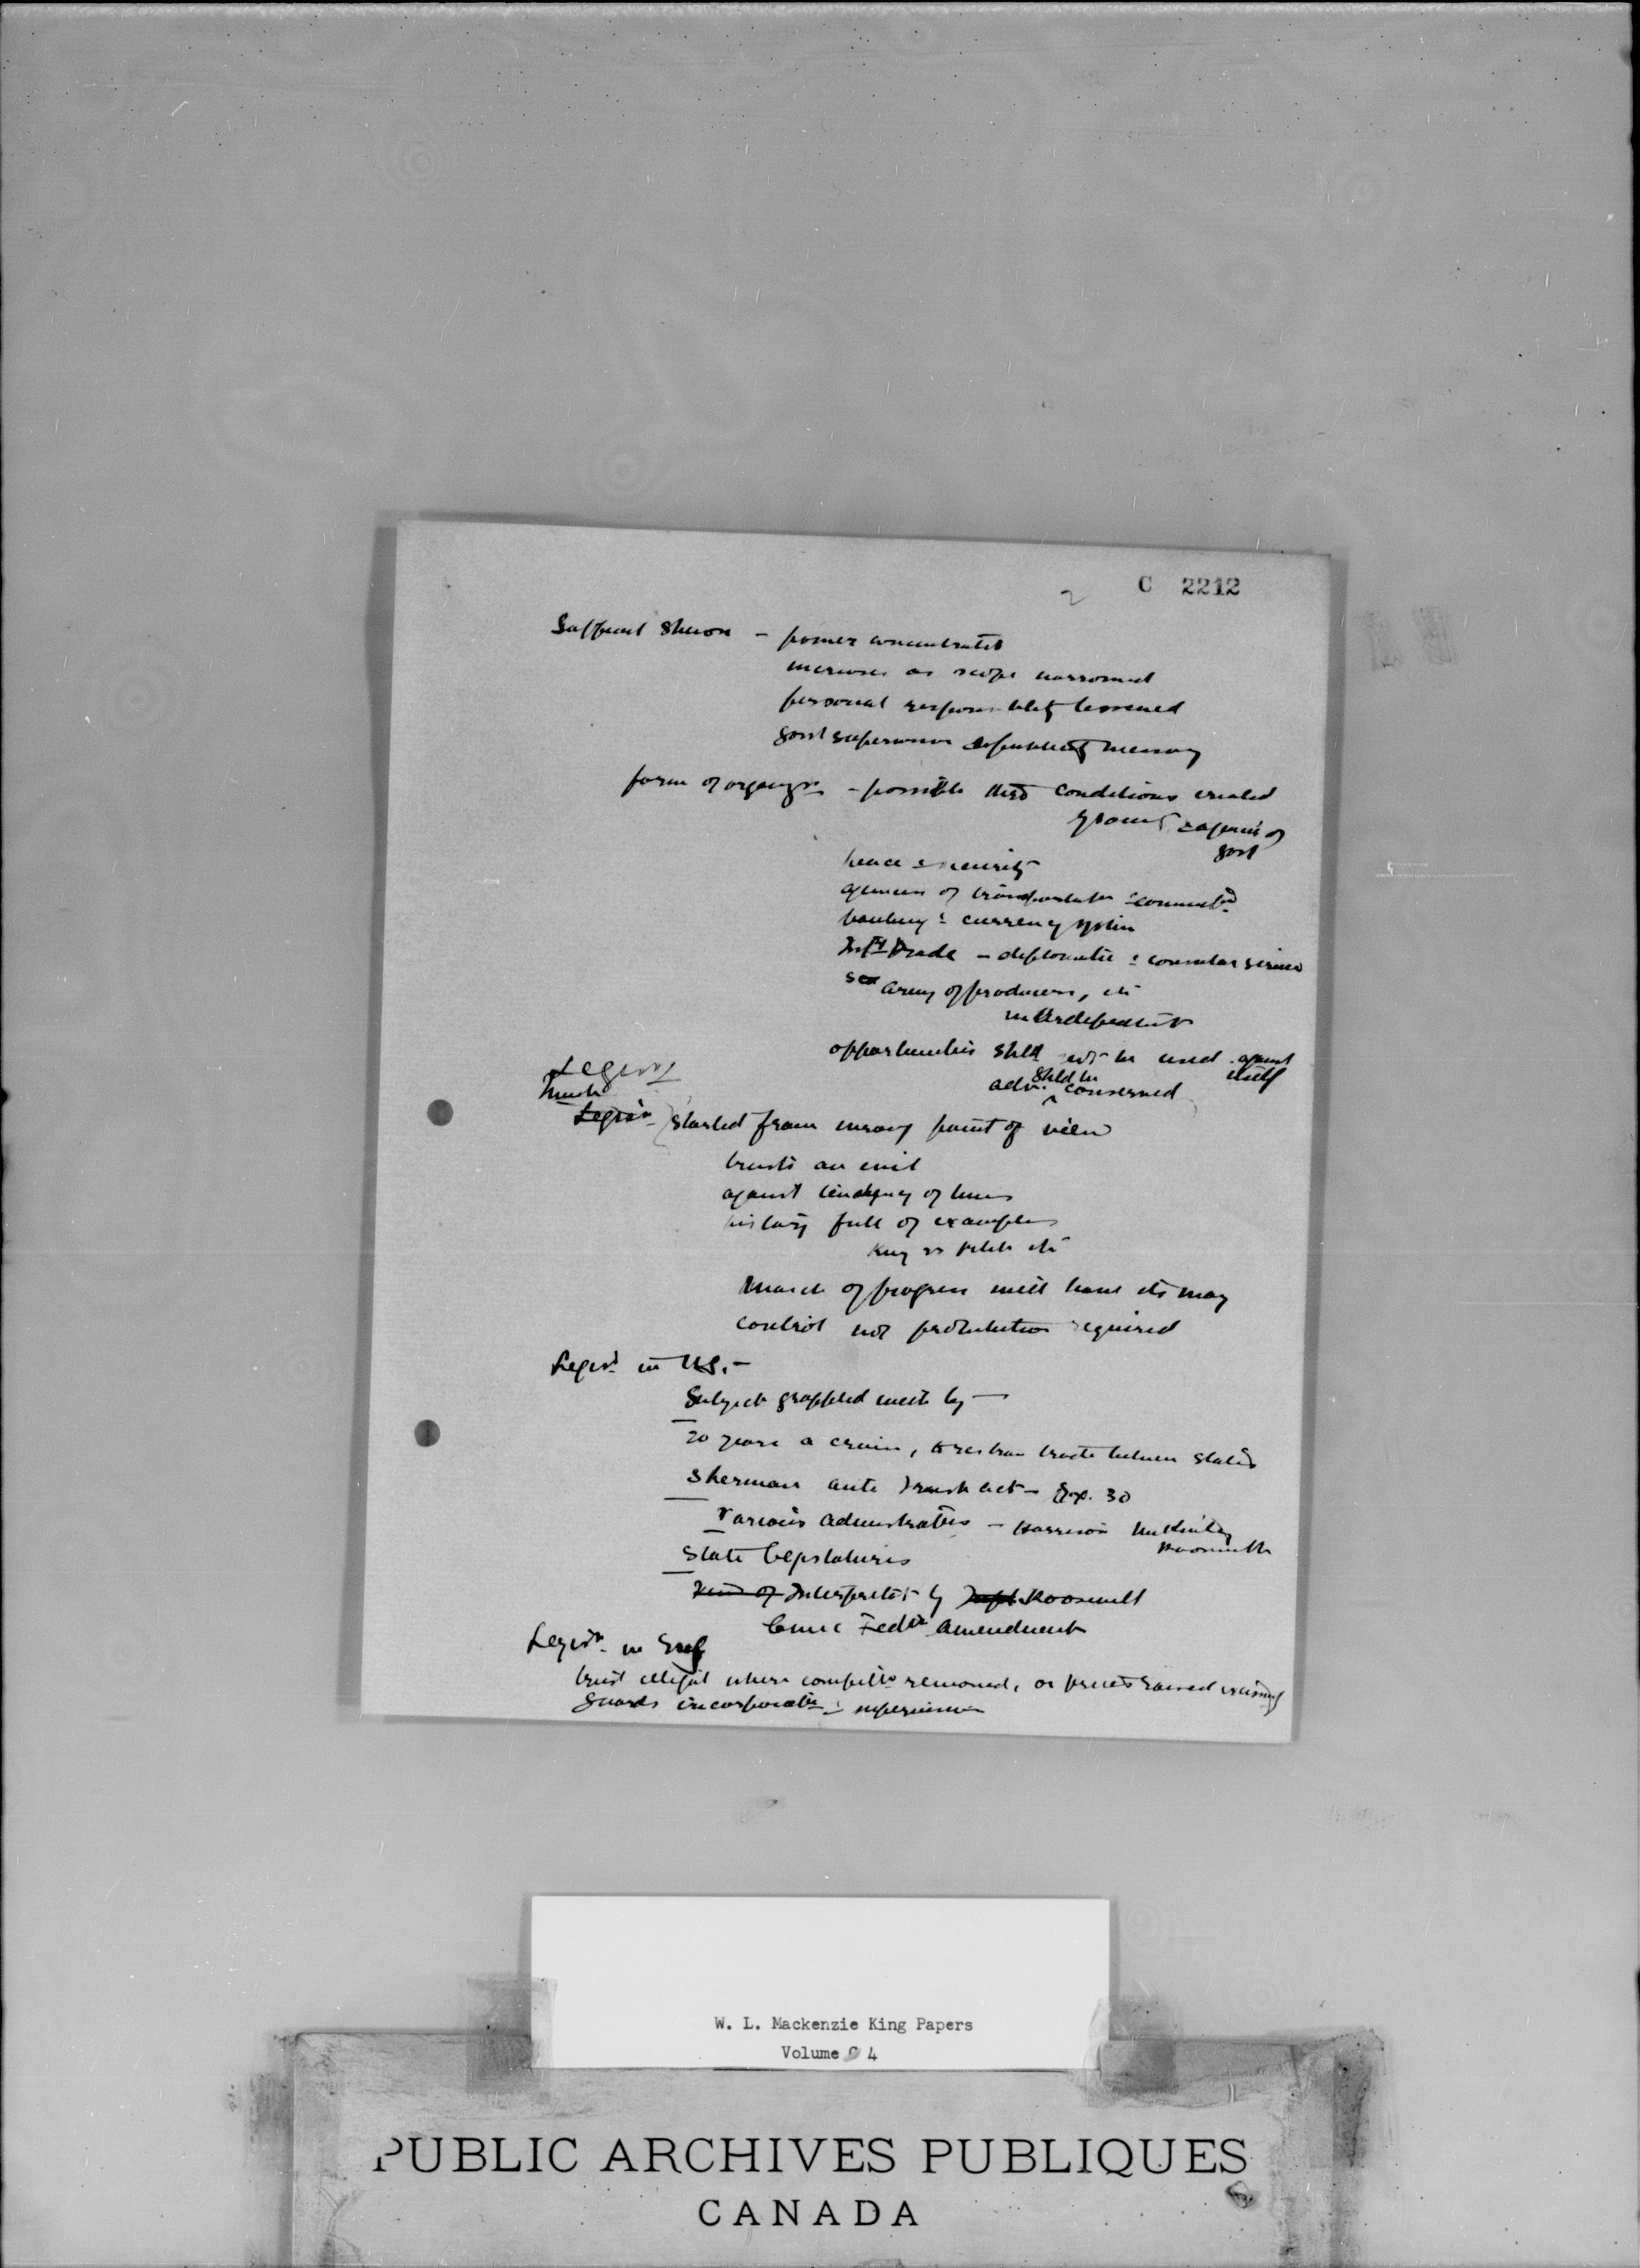 C 2212
2
power concentrated
increases as scope narrowed
personal responsibility lessened
govt supervision
form of organizn - possible thro conditions created
govt
peace & security
agencies of transportation & communictn
banking & currency system
Trade - diplomatic & consular service
army of producers, etc
interdependent
opportunities shld not be used against
itself
Legisn
shld be
adv. conserved
Much
Legis'n started from wrong point of view
trusts an evil
against tendency of times
history full of examples
King vs
March of progress will have its way
control not prohibition required
Legisn in US. -
Subject grappled with by —
20 years a crime, to restrain trade between states
Sherman anti Trust act - 30
Various Administratns - Harrison McKinley
Roosevelt
State Legislatures
Kind of Interpretat by Roosevelt
Civic Fedn Amendment
Legisn in Eng
trust illegal where competitn removed, or prices raised
guards incorporatn & supervision
W. L. Mackenzie King Papers
Volume 4
PUBLIC ARCHIVES PUBLIQUES
CANADA